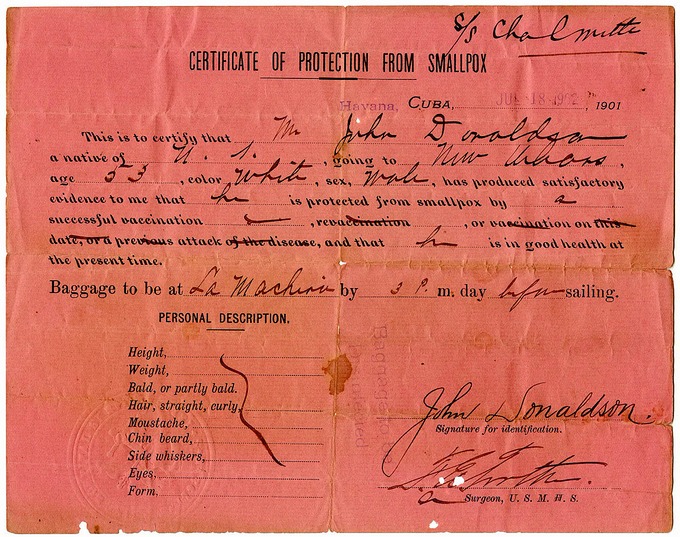 S/S Chalmette
CERTIFICATE OF PROTECTION FROM SMALLPOX
Havana, CUBA, JUN 18 1902, 1901
This is to certify that Mr John Donaldson
a native of U. S., going to New Orleans,
age 53, color White, sex, Male, has produced satisfactory
evidence to me that he is protected from smallpox by a
successful vaccination, revaccination, or vaccination on this
date, or a previous attack of the disease, and that he is in good health at
the present time.
Baggage to be at La Machina by 3 P. m. day before sailing.
PERSONAL DESCRIPTION.
Height,
Weight,
Bald, or partly bald.
Hair, straight, curly,
Moustache,
Chin beard,
Side whiskers,
Eyes,
Form,
John Donaldson.
Signature for identification.
Surgeon, U. S. M. H. S.